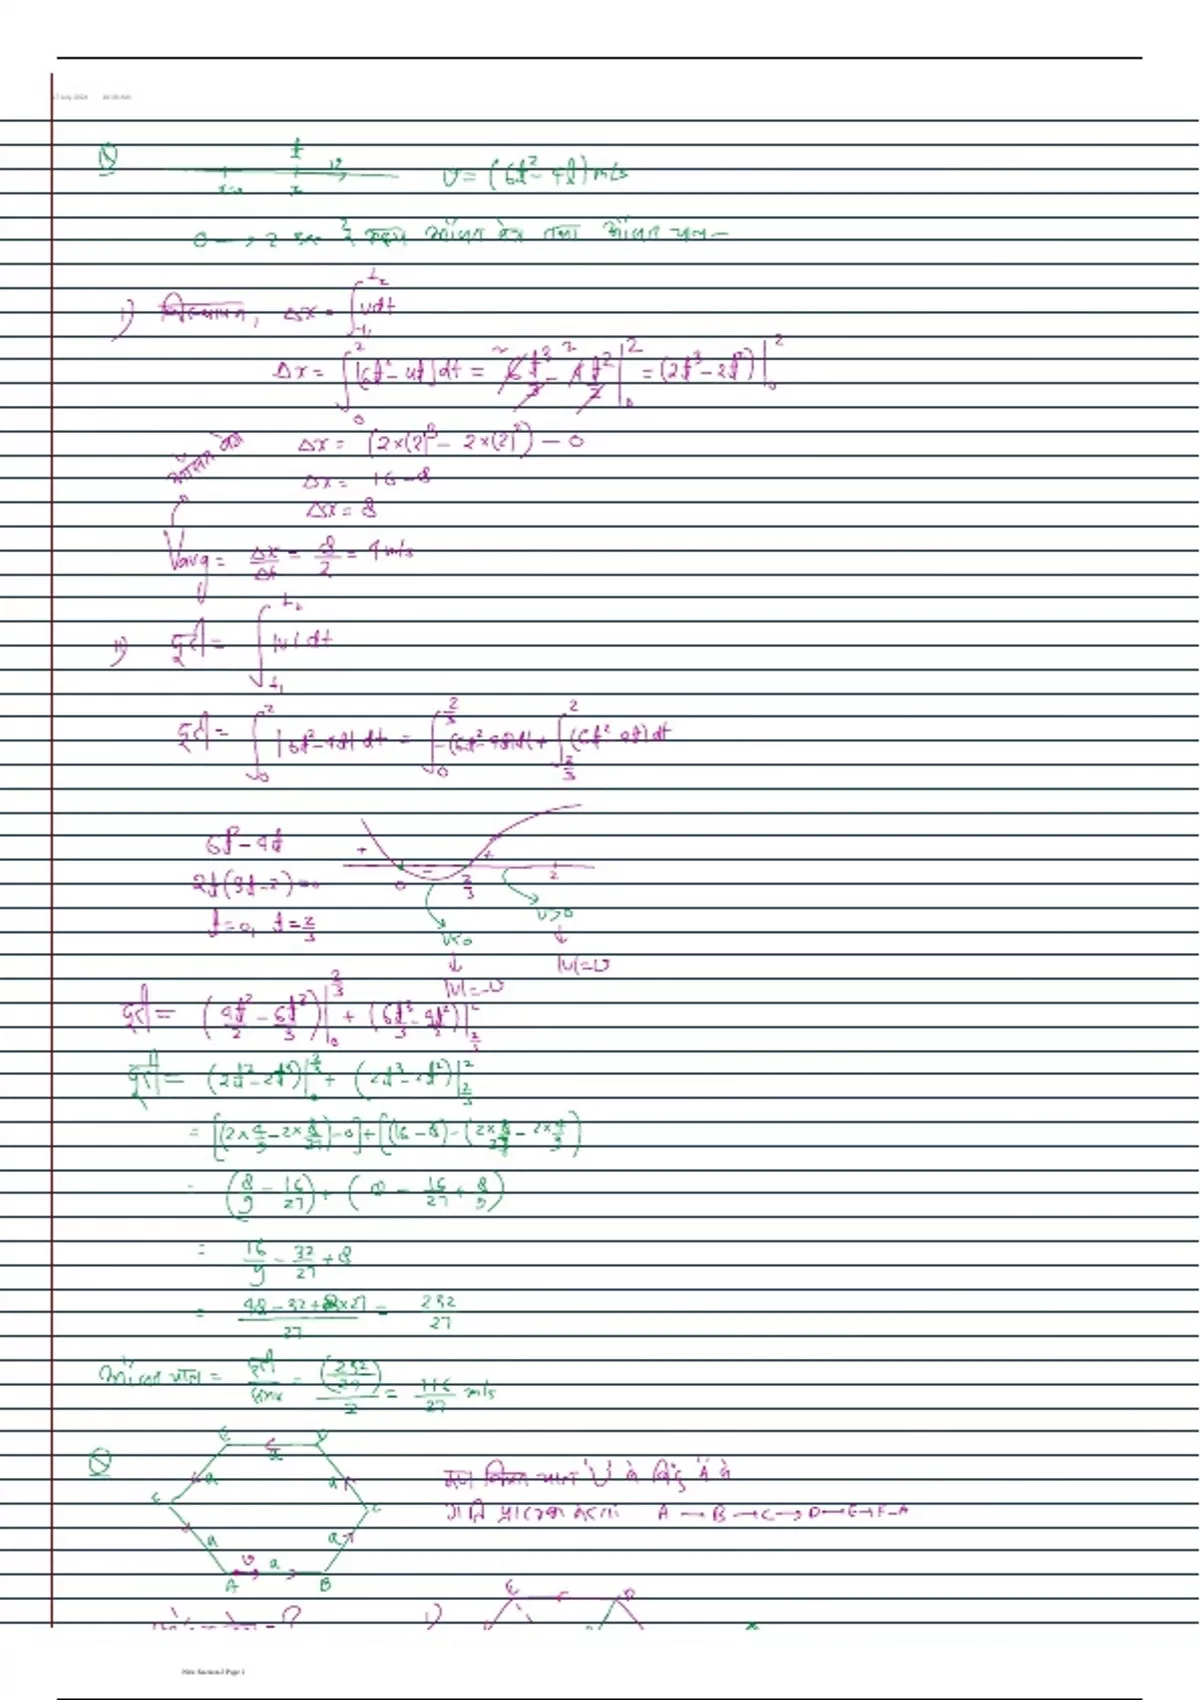 Q t v
x=0 x v = (6t² - 4t) m/s
0 → 2 sec औसत वेग तथा औसत चाल -
i) विस्थापन, Δx = ∫_{t₁}^{t₂} v dt
Δx = ∫_0^2 (6t² - 4t) dt = 6t³/3 - 4t²/2 |_0^2 = (2t³ - 2t²)|_0^2
Δx = (2×(2)³ - 2×(2)²) - 0
औसत वेग
Δx = 16 - 8
Δx = 8
Vavg = Δx/Δt = 8/2 = 4 m/s
ii) दूरी = ∫_{t₁}^{t₂} |v| dt
दूरी = ∫_0^2 |6t² - 4t| dt = ∫_0^{2/3} -(6t² - 4t) dt + ∫_{2/3}^2 (6t² - 4t) dt
6t² - 4t
+ - +
2t(3t - 2) = 0 0 2/3 2
t = 0, t = 2/3 v<0 v>0
|v| = -v |v| = v
दूरी = (4t²/2 - 6t³/3)|_0^{2/3} + (6t³/3 - 4t²/2)|_{2/3}^2
दूरी = (2t² - 2t³)|_0^{2/3} + (2t³ - 2t²)|_{2/3}^2
= [(2×4/9 - 2×8/27) - 0] + [(16 - 8) - (2×8/27 - 2×4/9)]
= (8/9 - 16/27) + (8 - 16/27 + 8/9)
= 16/9 - 32/27 + 8
= (48 - 32 + 8×27)/27 = 232/27
औसत चाल = दूरी/समय = (232/27)/2 = 116/27 m/s
Q
कण नियत चाल 'v' से बिंदु 'A' से
गति प्रारम्भ करता A → B → C → D → E → F → A
A v a B
i) E D
New Section 1 Page 1